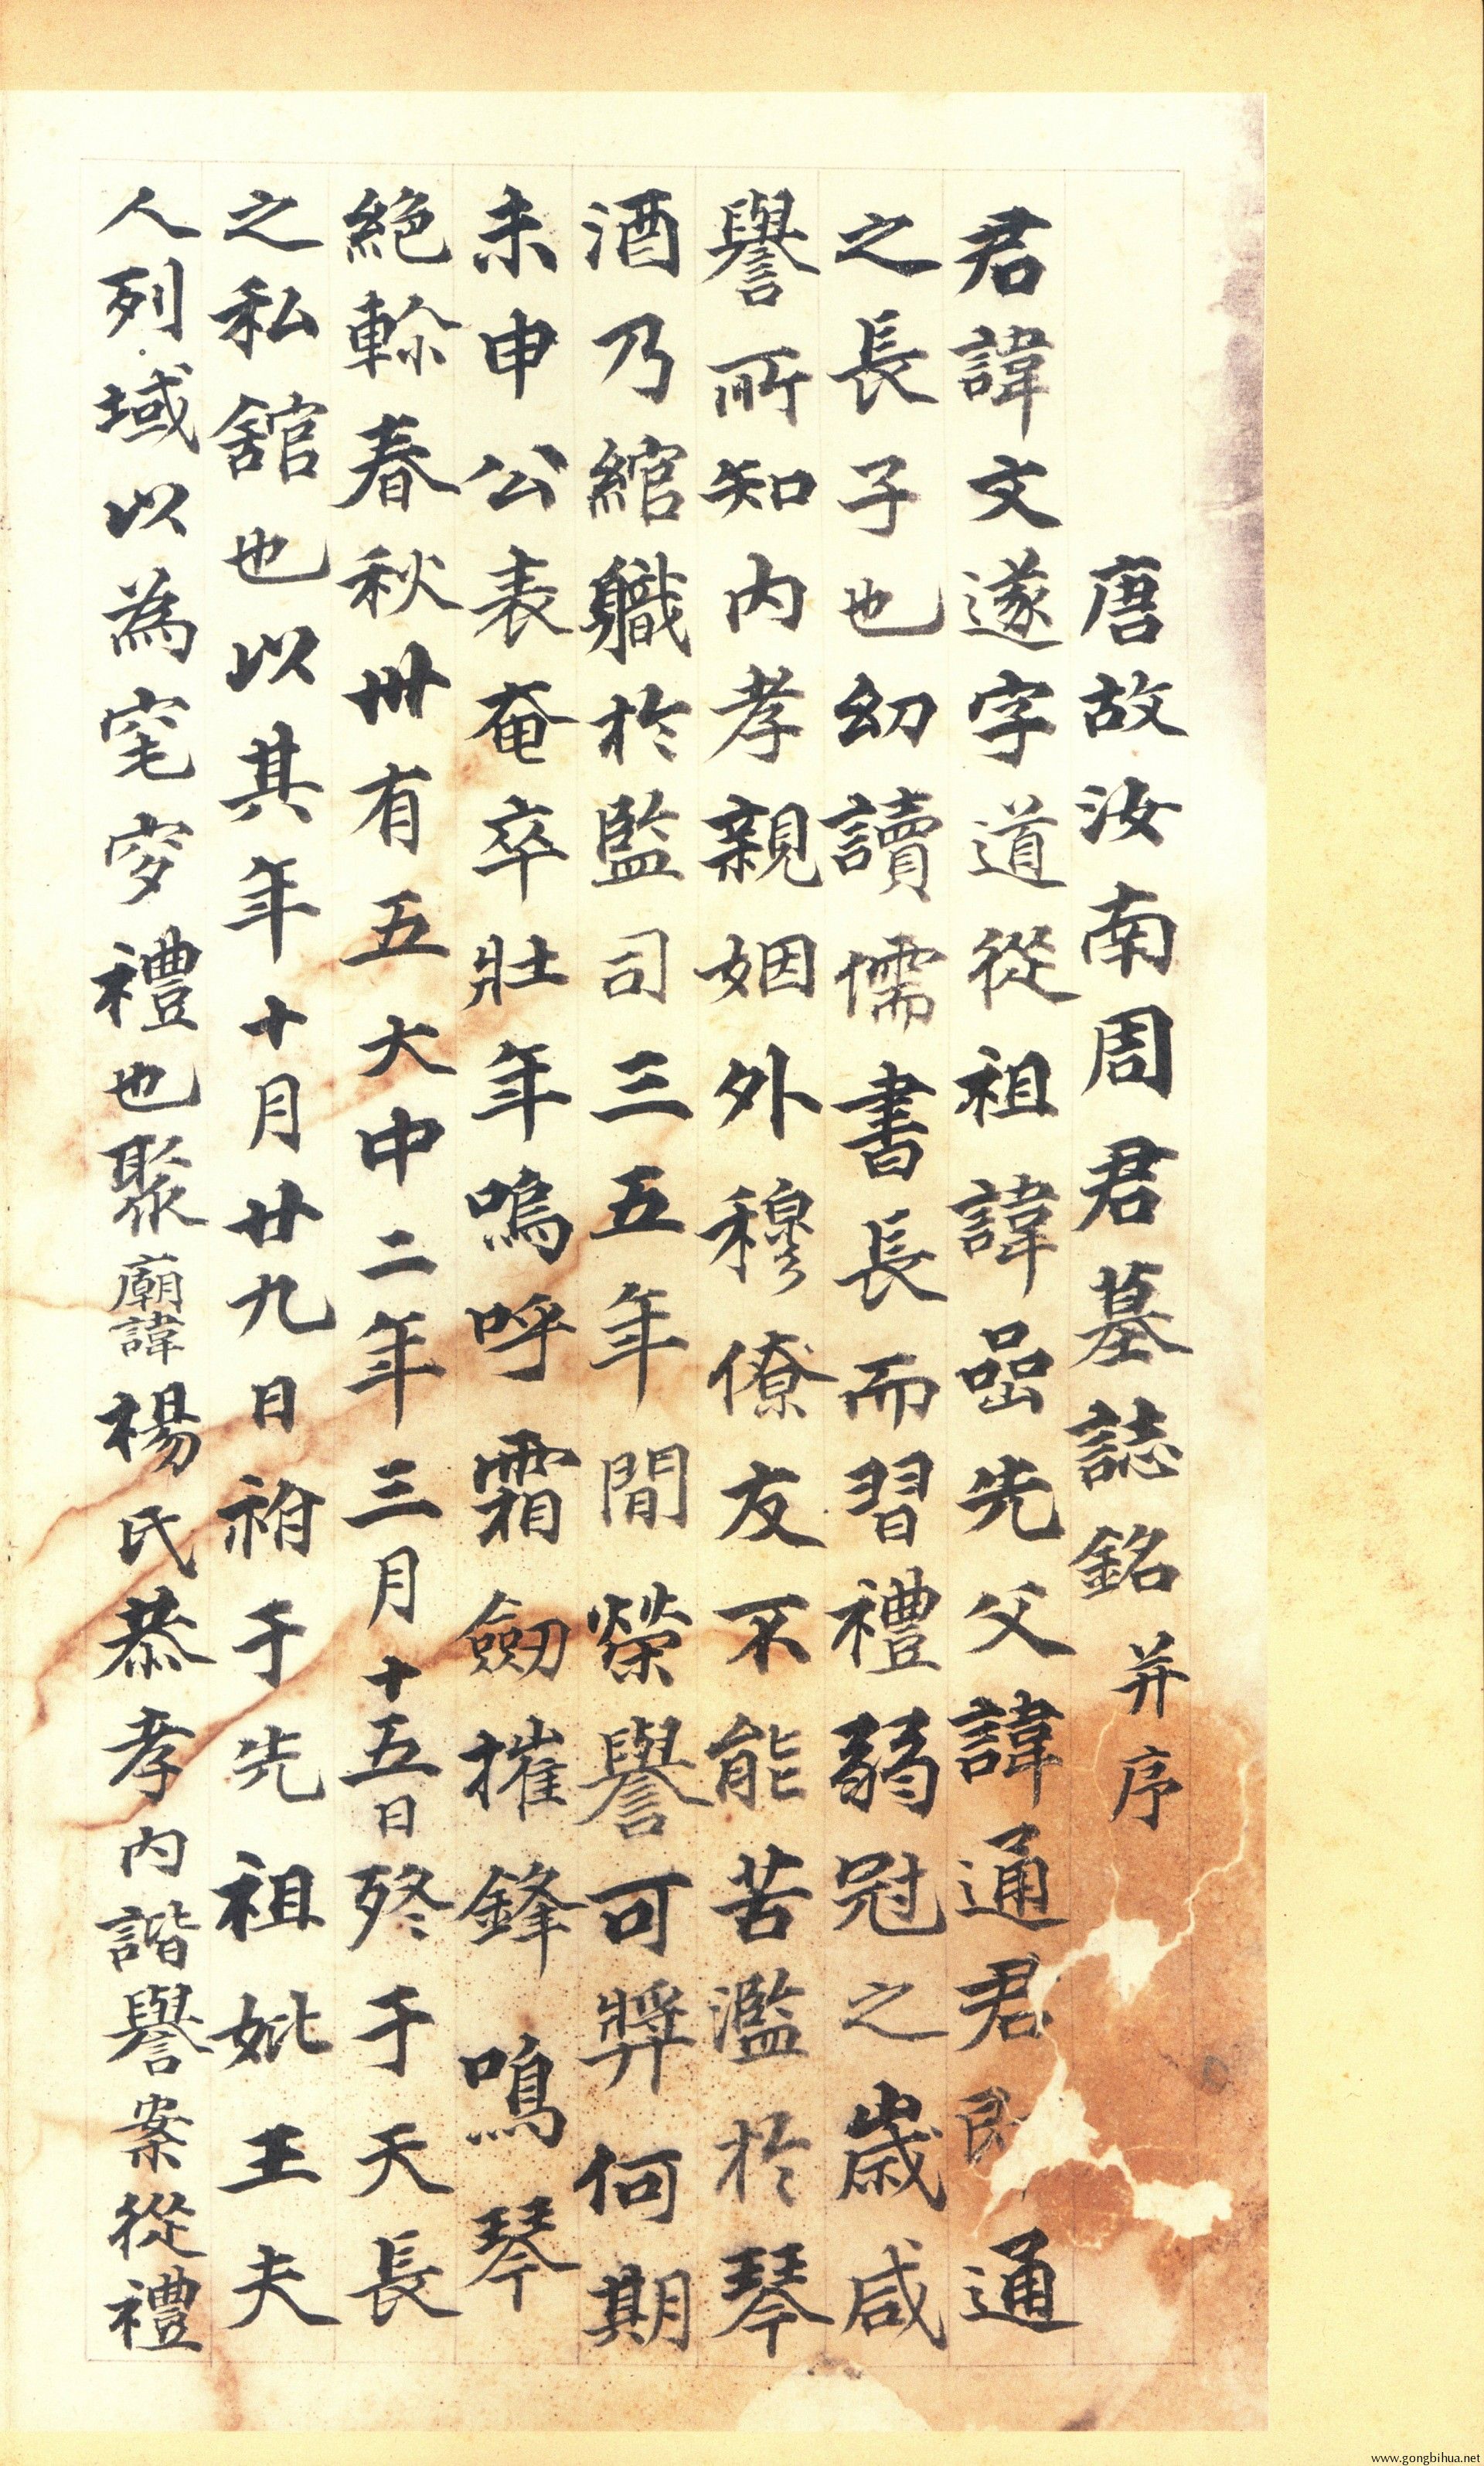 唐故汝南周君墓誌銘 并序
君諱文遂字道從祖諱喦先父諱通君即通
之長子也幼讀儒書長而習禮弱冠之歲咸
譽所知内孝親姻外穆僚友不能苦濫於琴
酒乃綰軄於監司三五年間榮譽可弉何期
未申公表奄卒壯年嗚呼霜劒摧鋒鳴琴
絶軫春秋卅有五大中二年三月十五日終于天長
之私舘也以其年十月廿九日祔于先祖妣王夫
人列域以為窀穸禮也聚廟諱楊氏恭孝内諧譽案從禮
www.gongbihua.net